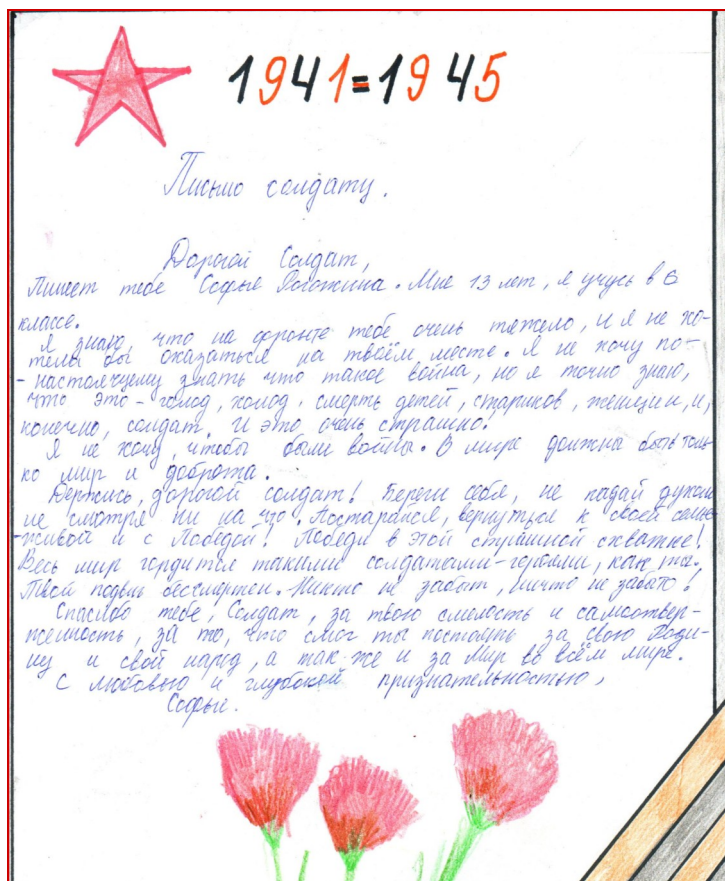 1941=1945
Письмо солдату.
Дорогой Солдат,
Пишет тебе Софья Рогожина. Мне 13 лет, я учусь в 6
классе.
Я знаю, что на фронте тебе очень тяжело, и я не хо-
тела бы оказаться на твоём месте. Я не хочу по-
-настоящему знать что такое война, но я точно знаю,
что это - голод, холод, смерть детей, стариков, женщин, и,
конечно, солдат. И это очень страшно.
Я не хочу, чтобы были войны. В мире должны быть толь
ко мир и доброта.
Держись, дорогой солдат! Береги себя, не падай духом
не смотря ни на что. Постарайся, вернуться к своей семье
живой и с Победой! Победи в этой страшной схватке!
Весь мир гордится такими солдатами-героями, как ты.
Твой подвиг бессмертен. Никто не забыт, ничто не забыто!
Спасибо тебе, Солдат, за твою смелость и самоотвер-
женность, за то, что смог ты постоять за свою Роди-
ну и свой народ, а так же и за Мир во всём мире.
С любовью и глубокой признательностью,
Софья.